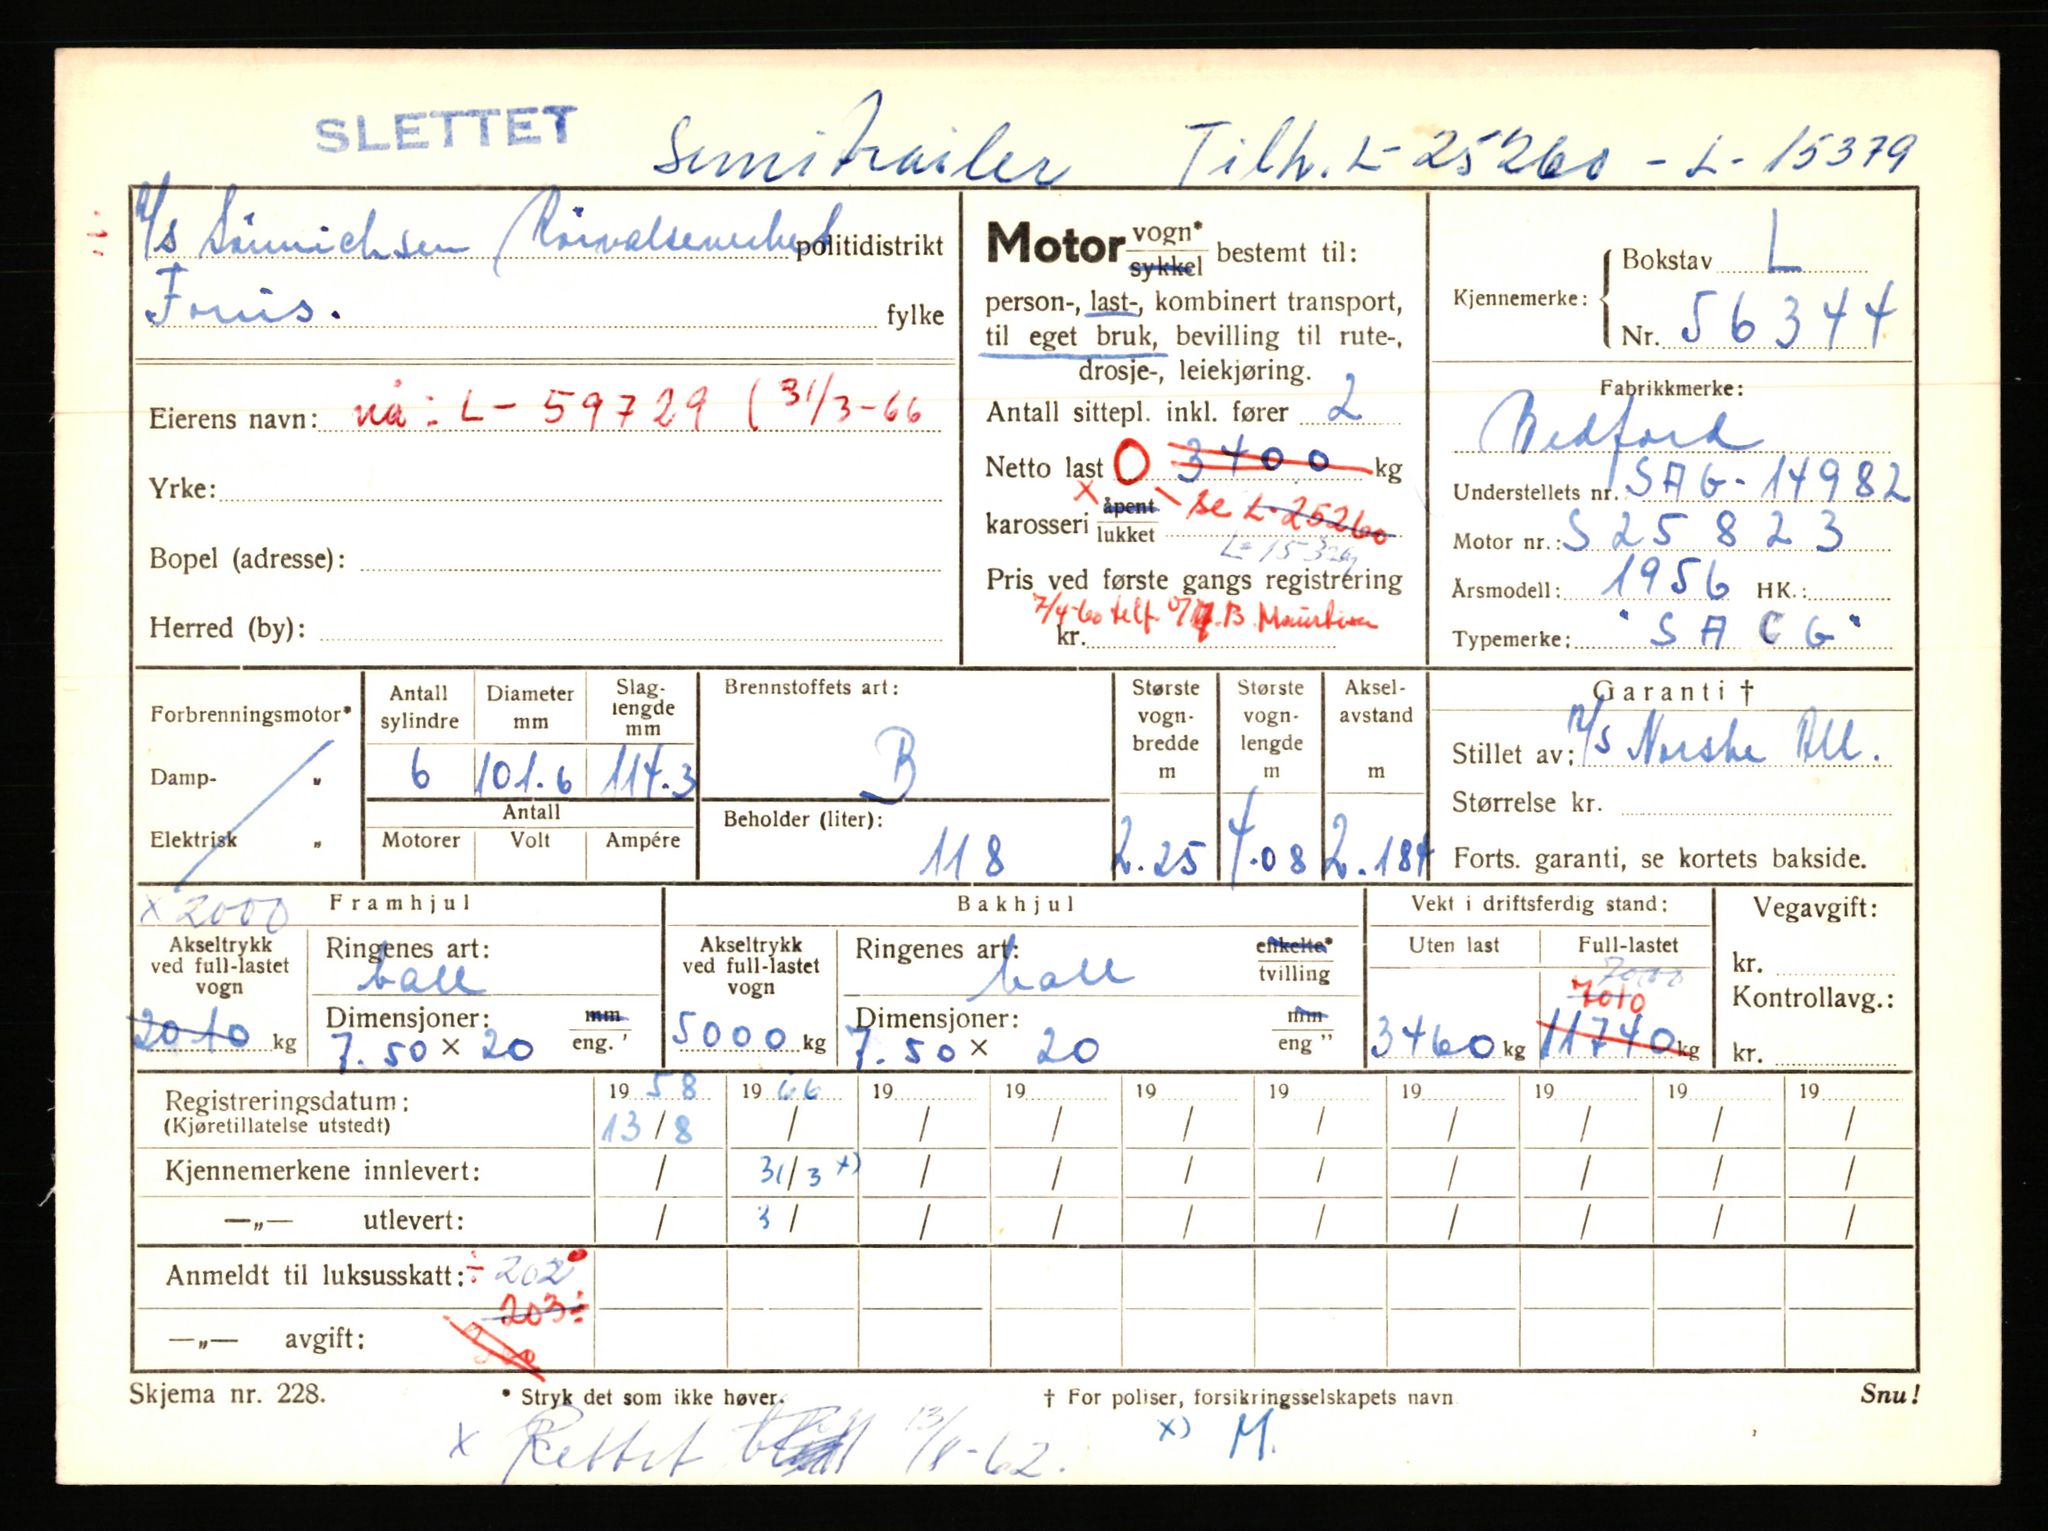 SLETTET
Semitrailer Tilh. L-25260 - L-15379
A/S Sönnichsen Rörvalseverket politidistrikt
Fornis. fylke
Eierens navn: nå: L-59729 (31/3-66
Yrke:
Bopel (adresse):
Herred (by):
Motor vogn* sykkel bestemt til:
person-, last-, kombinert transport,
til eget bruk, bevilling til rute-,
drosje-, leiekjøring.
Antall sittepl. inkl. fører 2
Netto last 0 3400 kg
x karosseri åpent lukket - se L-25260
Pris ved første gangs registrering
7/4-60 telf.
kr.
Kjennemerke: Bokstav L
Nr. 56344
Fabrikkmerke:
Bedford
Understellets nr. SAG-14982
Motor nr.: S25823
Årsmodell: 1956 HK.:
Typemerke: "SACG"
Forbrenningsmotor*
Damp- „
Elektrisk „
Antall sylindre Diameter mm Slaglengde mm
6 101.6 114.3
Antall
Motorer Volt Ampére
Brennstoffets art:
B
Beholder (liter):
118
Største vogn-bredde m Største vogn-lengde m Aksel-avstand m
2.25 4.08 2.184
Garanti †
Stillet av: A/S Norske All.
Størrelse kr.
Forts. garanti, se kortets bakside.
x 2000 Framhjul
Akseltrykk ved full-lastet vogn
2010 kg
Ringenes art:
ball
Dimensjoner: mm eng. '
7.50 x 20
Bakhjul
Akseltrykk ved full-lastet vogn
5000 kg
Ringenes art: enkelte* tvilling
ball
Dimensjoner: mm eng "
7.50 x 20
Vekt i driftsferdig stand:
Uten last Full-lastet
7000
7010
3460 kg 11740 kg
Vegavgift:
kr.
Kontrollavg.:
kr.
Registreringsdatum: 19 58 19 66 19 19 19 19 19 19 19 19
(Kjøretillatelse utstedt) 13/8 / / / / / / / / /
Kjennemerkene innlevert: / 31/3 x) / / / / / / / /
—„— utlevert: / 3/ / / / / / / / /
Anmeldt til luksusskatt: ÷ 202
203 ÷
—„— avgift:
Skjema nr. 228. * Stryk det som ikke høver. † For poliser, forsikringsselskapets navn. Snu!
x Rettet 13/8-62. x) M.